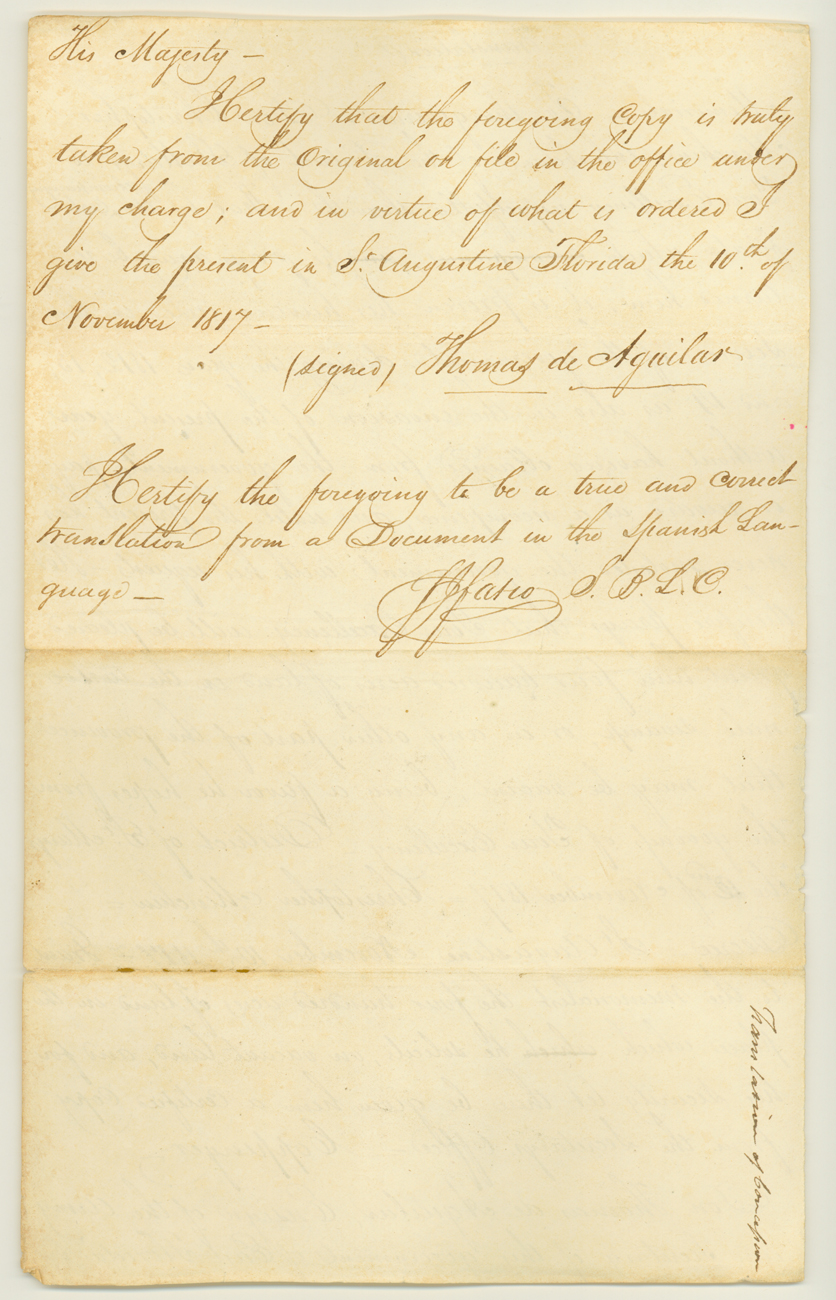 His Majesty —
I Certify that the foregoing Copy is truly
taken from the Original on file in the office under
my charge; and in virtue of what is ordered I
give the present in St. Augustine Florida the 10.th of
November 1817 —
(signed) Thomas de Aguilar
I Certify the foregoing to be a true and correct
translation from a Document in the Spanish Lan-
guage — FJFatio S. B. L. C.
Translation of Concession